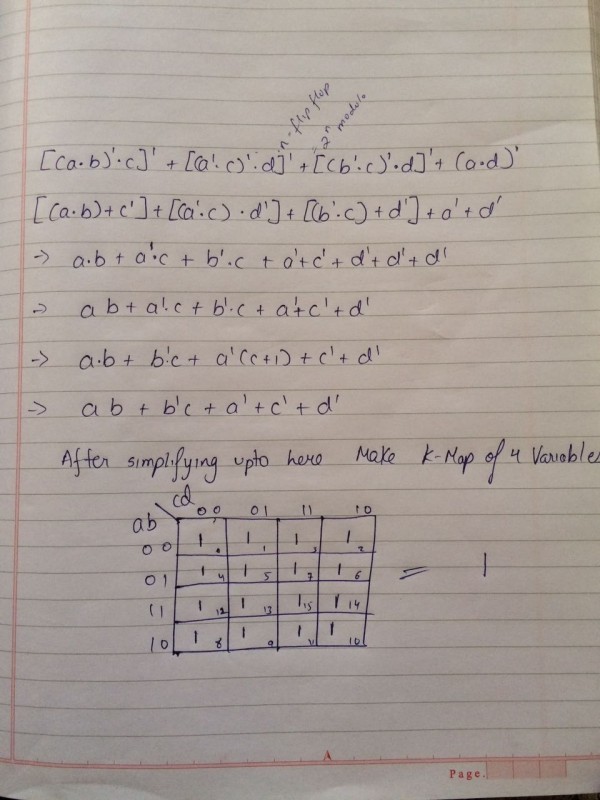 n-flip flop
2^n modulo
[(a·b)'·c]' + [(a'·c)'·d]' + [(b'·c)'·d]' + (a·d)'
[(a·b)+c'] + [(a'·c) · d'] + [(b'·c) + d'] + a' + d'
→ a·b + a'·c + b'·c + a'+c' + d'+d'+d'
→ a b + a'·c + b'·c + a'+c'+d'
→ a·b + b'c + a'(c+1) + c'+d'
→ a b + b'c + a' + c' + d'
After simplifying upto here Make K-Map of 4 Variables
cd
ab 00 01 11 10
00 1 0 1 1 1 3 1 2
01 1 4 1 5 1 7 1 6 = 1
11 1 12 1 13 1 15 1 14
10 1 8 1 9 1 11 1 10
A
Page.